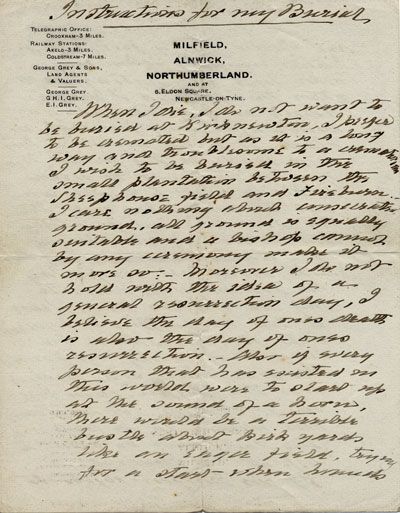 Instructions for my Burial
TELEGRAPHIC OFFICE:
CROOKHAM-3 MILES.
RAILWAY STATIONS:
AKELD-3 MILES.
COLDSTREAM-7 MILES.
GEORGE GREY & SONS,
LAND AGENTS
& VALUERS.
GEORGE GREY.
G.H.I. GREY.
E.I. GREY.
MILFIELD,
ALNWICK,
NORTHUMBERLAND.
AND AT
6, ELDON SQUARE,
NEWCASTLE-ON-TYNE.
When I die, I do not want to
be buried at Kirknewton, I prefer
to be cremated but as it is a long
way and troublesome to a
I wish to be buried in the
small plantation between the
Sheephouse field and
I care nothing about
ground, all ground is equally
suitable and a bishop cannot
by any ceremony make it
more so:- Moreover I do not
hold with the idea of a
general resurrection day, I
believe the day of ones death
is also the day of ones
resurrection.- Also if every
person that has existed in
this world were to start up
at the sound of a horn,
there would be a terrible
bustle about Kirk yards
like an Eager Field,
for a start when hounds